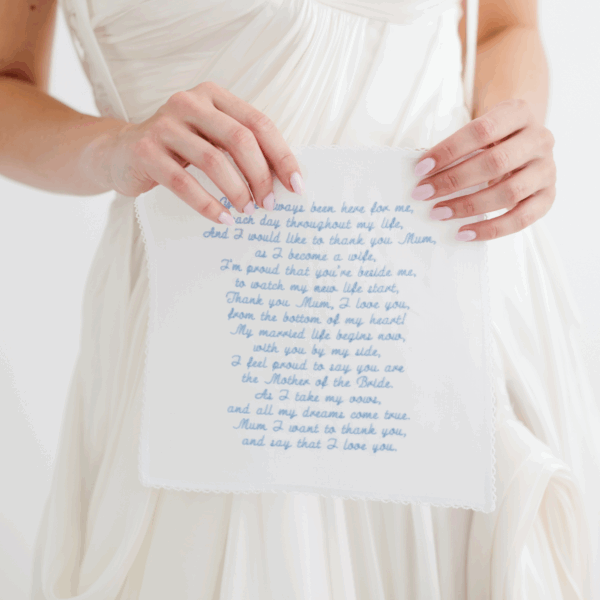 always been here for me,
each day throughout my life,
And I would like to thank you Mum,
as I become a wife,
I'm proud that you're beside me,
to watch my new life start,
Thank you Mum, I love you,
from the bottom of my heart!
My married life begins now,
with you by my side,
I feel proud to say you are
the Mother of the Bride.
As I take my vows,
and all my dreams come true.
Mum I want to thank you,
and say that I love you.